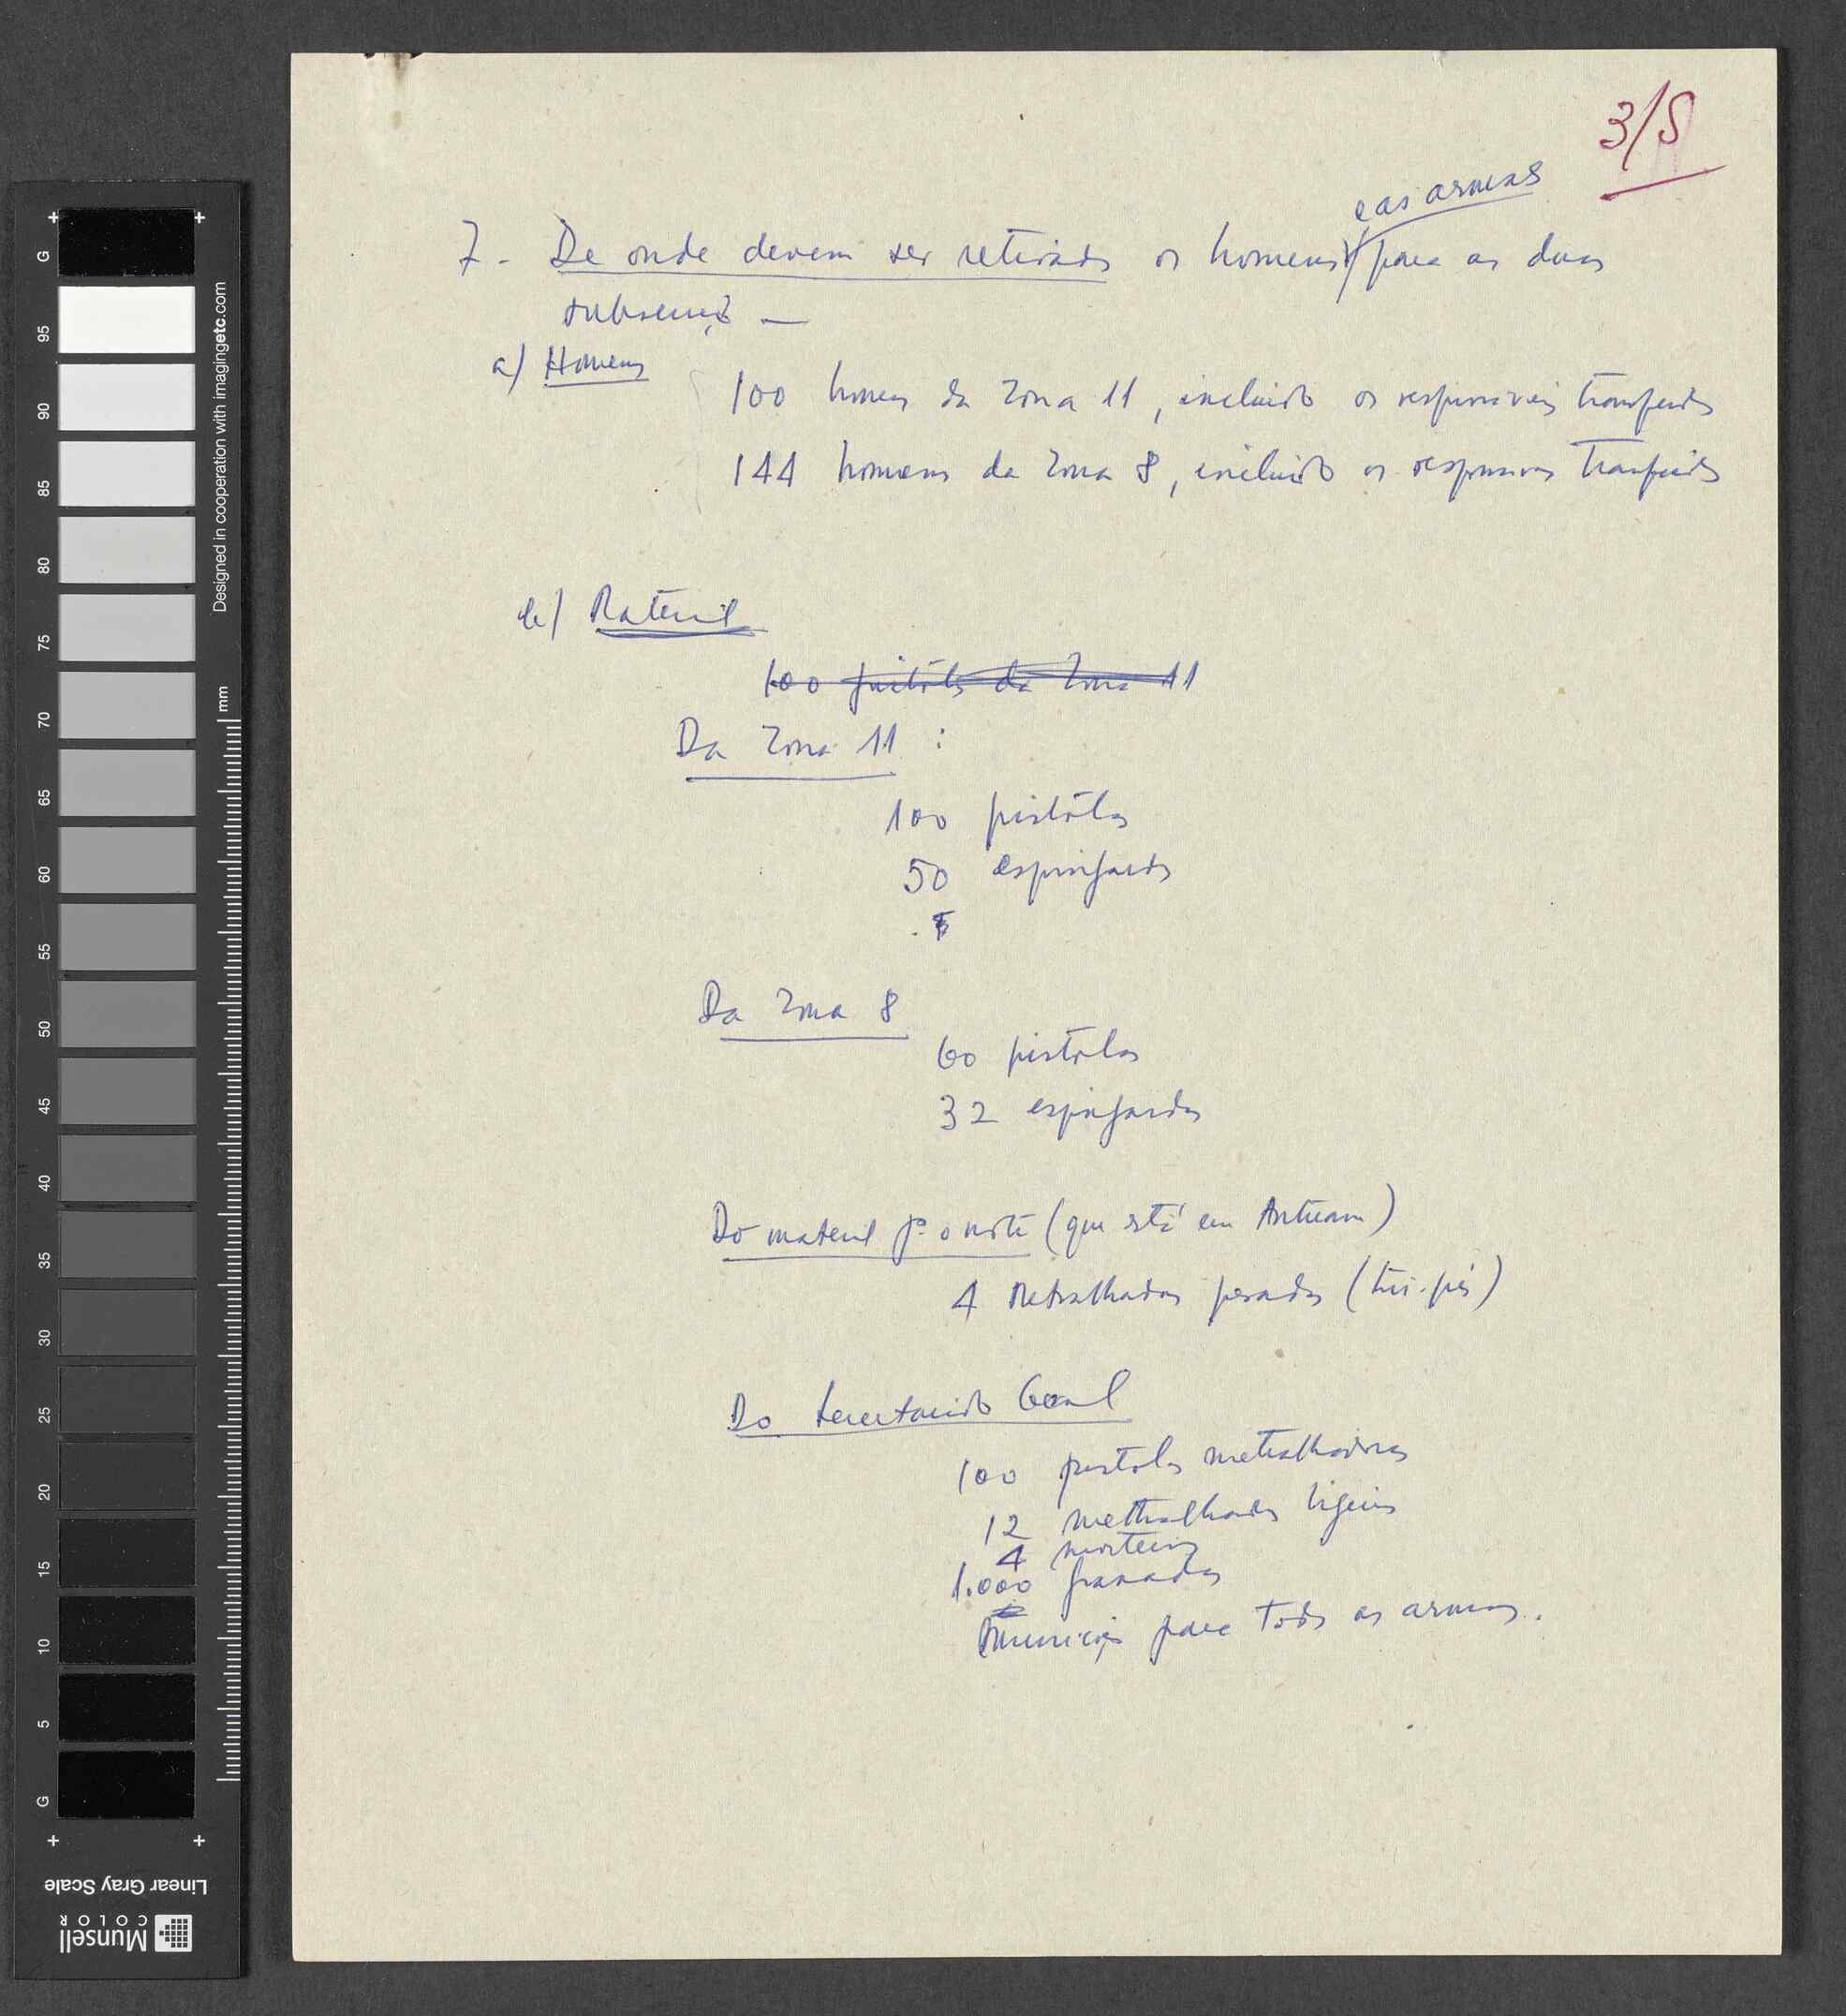 3/5
e as armas
7 - De onde devem ser retirados os homens para as duas
a) Homens
100 homens da Zona 11, incluindo os responsáveis transferidos
144 homens da Zona 8, incluindo os responsáveis transferidos
b) Material
100 pistolas da Zona 11
Da Zona 11 :
100 pistolas
50 espingardas
Da Zona 8
60 pistolas
32 espingardas
Do material pª o norte (que está em
4 Metralhadoras pesadas (tri-pés)
Do Secretariado Geral
100 pistolas metralhadoras
12 metralhadoras ligeiras
4 morteiros
1.000 granadas
Munições para todas as armas.
G 95 90 85 80 75 70 65 60 55 50 45 40 35 30 25 20 15 10 5 G
mm
Designed in cooperation with imagingetc.com
Linear Gray Scale
Munsell
COLOR